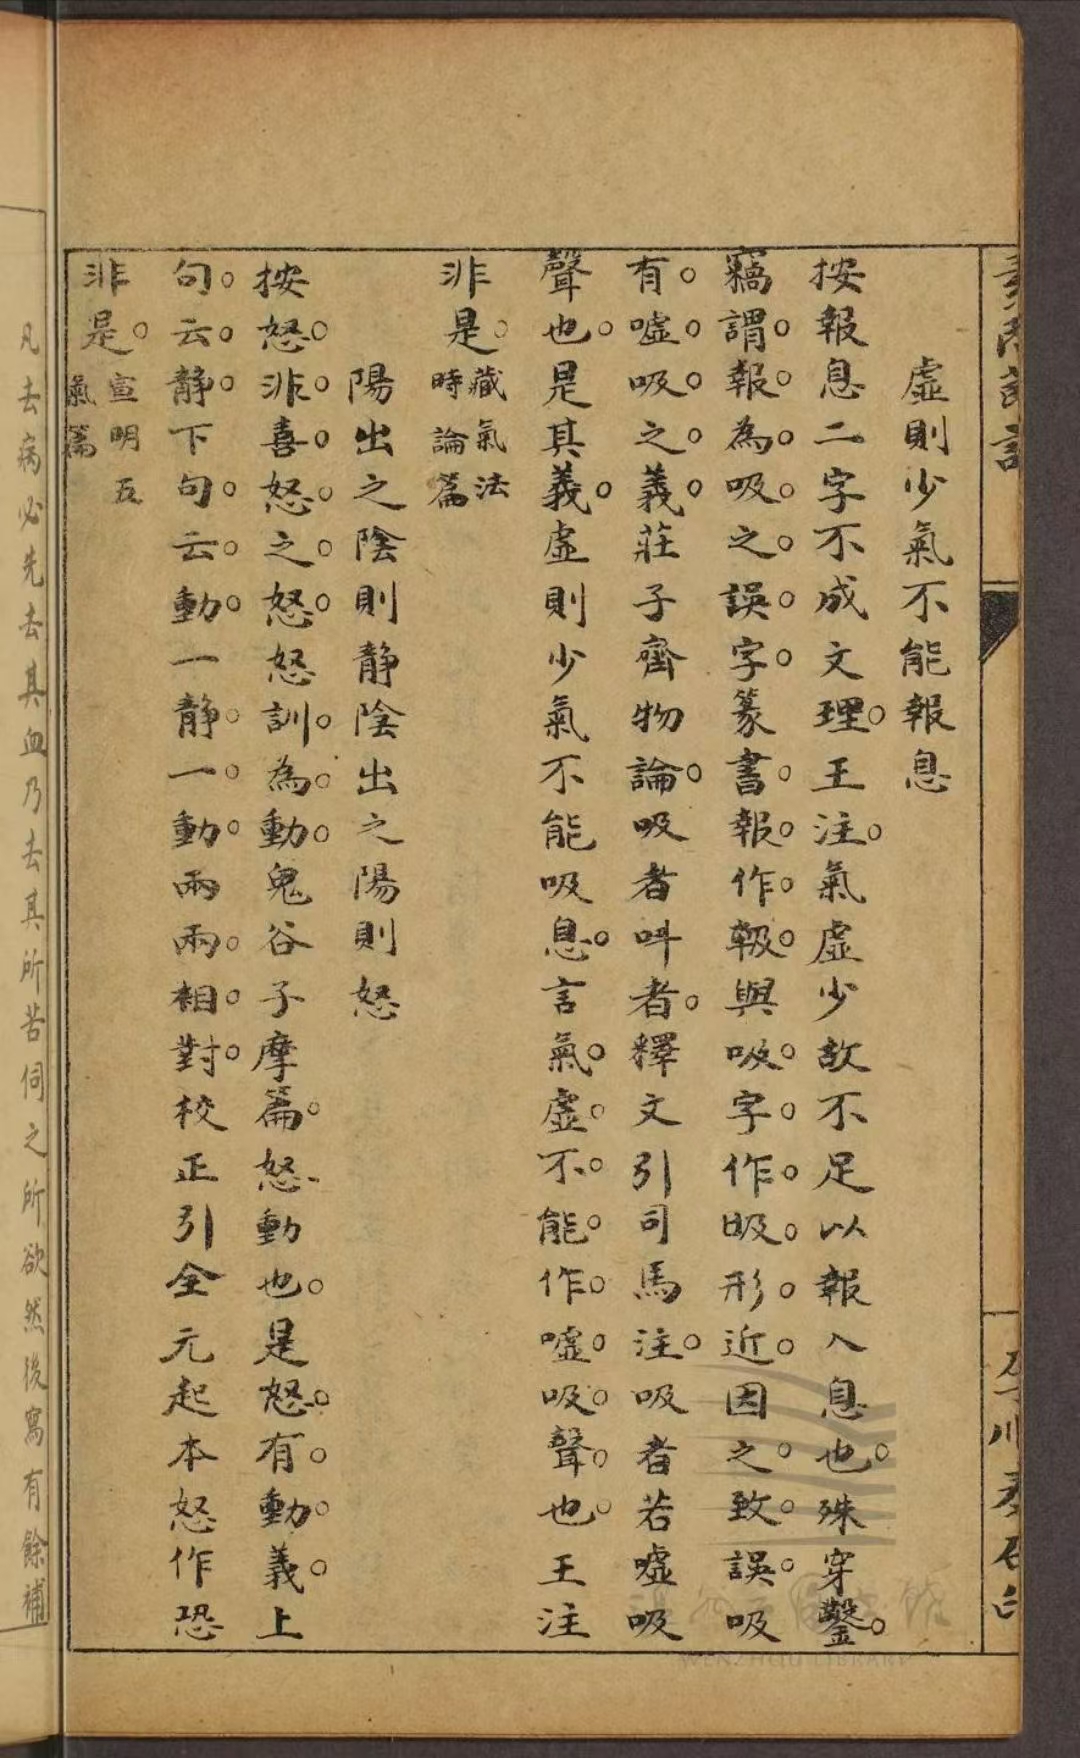 虛則少氣不能報息
按報息二字不成文理。王注。氣虛少故不足以報入息也。殊穿鑿。
竊謂。報。為。吸。之。誤。字。篆書。報。作。䩯。與吸。字。作。昅。形。近。因之。致。誤。吸
有。嘘。吸。之。義。莊子齊物論。吸者叫者。釋文引司馬注。吸者若嘘吸
聲也。是其義。虛則少氣不能吸息。言氣。虛。不。能。作。嘘。吸。聲。也。王注
非是。藏氣法
時論篇
陽出之陰則静陰出之陽則怒
按怒。非。喜。怒。之。怒。怒訓。為。動。鬼谷子摩篇。怒、動也。是怒。有。動。義。上
句。云。静。下句。云。動。一静。一。動。兩兩。相。對。校正引全元起本怒作恐
非是。宣明五
氣篇
凡去病必先去其血乃去其所苦伺之所欲然後寫有餘補